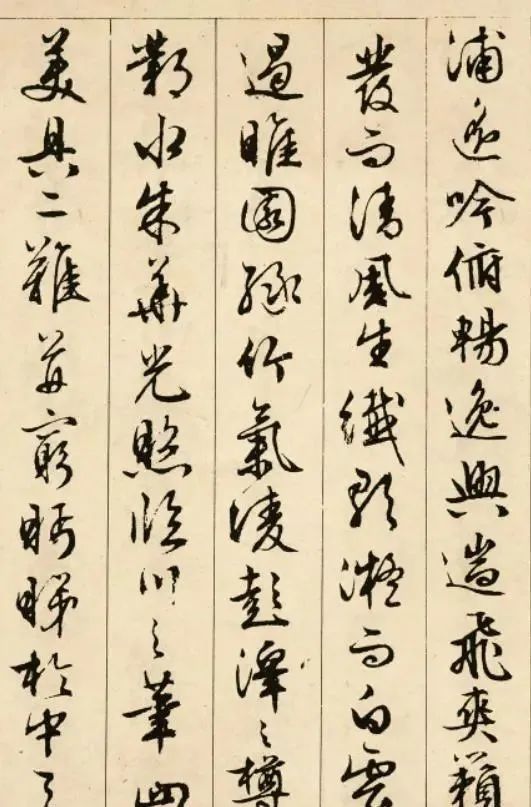 浦遥吟俯暢逸興遄飛爽籟
發而清風生纖歌凝而白雲
遏睢園緑竹氣淩彭澤之樽
鄴水朱華光照臨川之筆四
美具二難并窮眄睇於中